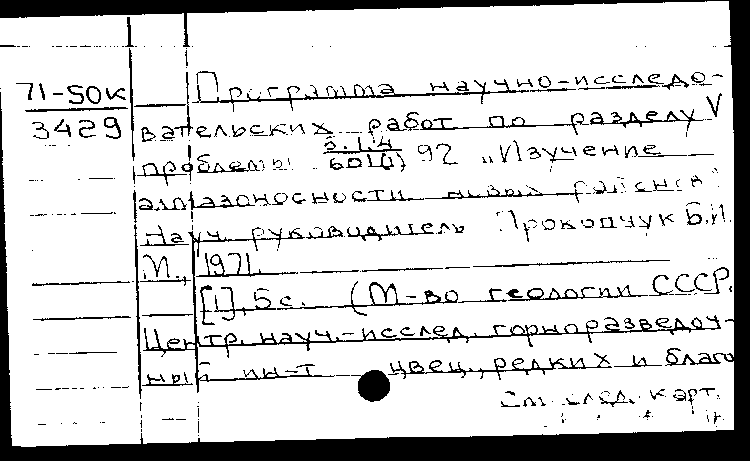 71-50к Программа научно-исследо-
3429 вательских работ по разделу V
проблемы 5.1.4/601(1) 92 „Изучение
алмазоносности новых районов"
Науч. руководитель Прокопчук Б.И.
М., 1971.
[1], 5 с. (М-во геологии СССР.
Центр. науч.-исслед. горноразведоч-
ный ин-т цвец., редких и благо
См. след. карт.